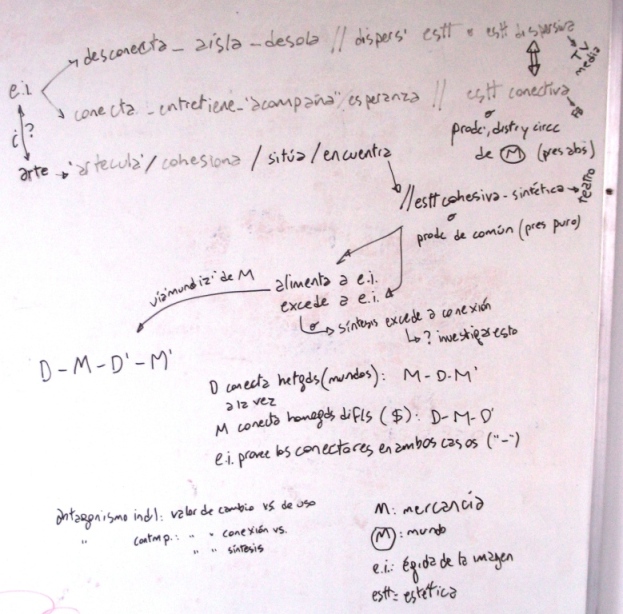 desconecta_ aísla _ desola // dispers' estt = estt dispersiva
TV
media
e.i
conecta _ entretiene_ "acompaña"/esperanza // estt conectiva
¿?
prodc', distr y circc
de (M) (pres abs)
arte → 'artecula' / cohesiona / sitúa / encuentra
// estt cohesiva - sintética → teatro
prodc de común (pres puro)
vía mundiz' de M
alimenta a e.i.
excede a e.i.
síntesis excede a conexión
↳ ? investigar esto
D - M - D' - M'
D conecta hetgds (mundos): M - D - M'
a la vez
M conecta homogds difls ($): D - M - D'
e.i. provee los conectores en ambos casos ("-")
antagonismo indl: valor de cambio vs de uso
" contmp.: " " conexión vs.
" " síntesis
M: mercancía
(M): mundo
e.i.: égida de la imagen
estt= estética